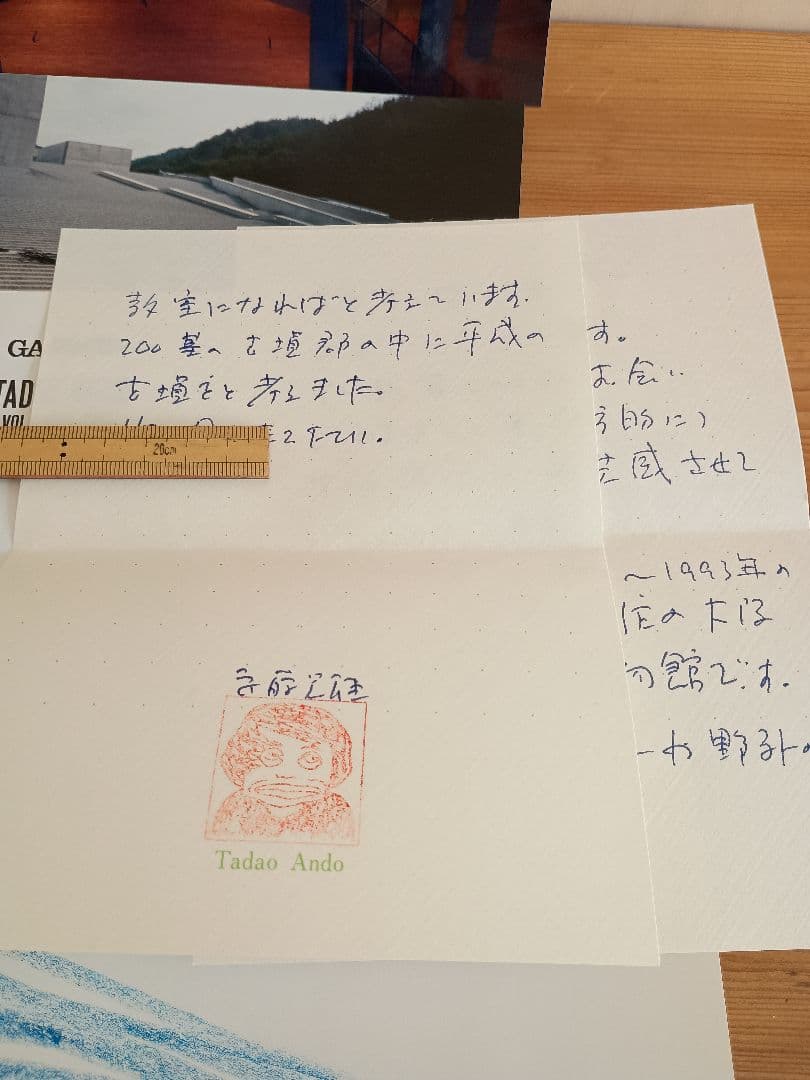 GA
TAD
VOL
教室になればと考えています.
200基の古墳郡の中に平成の
古墳をと考えました。
下さい.
20cm
安藤忠雄
Tadao Ando
す。
お会い
的に
させて
〜1993年の
の大阪
館です.
野外の